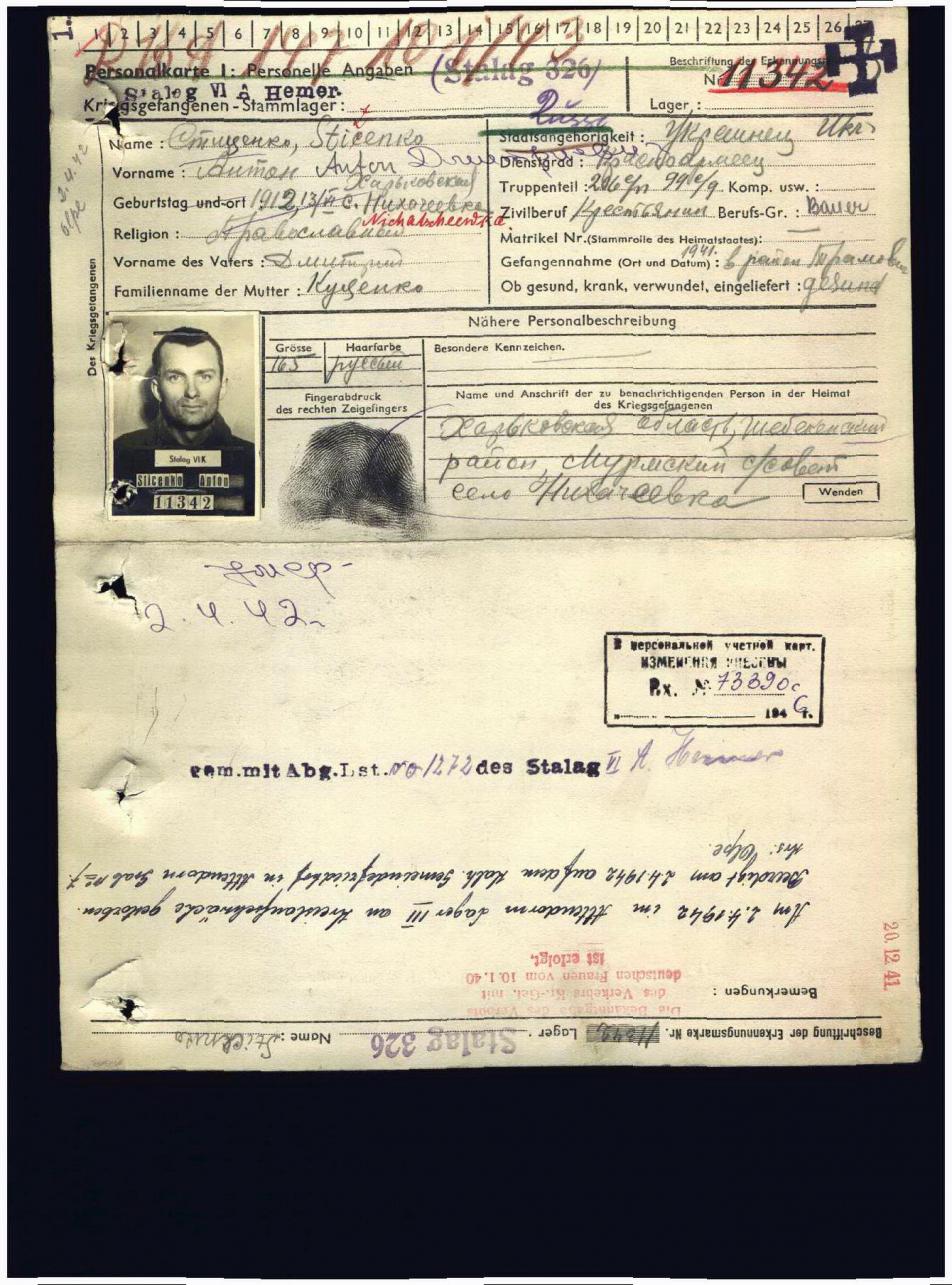 1.
1 2 3 4 5 6 7 8 9 10 11 12 13 14 15 16 17 18 19 20 21 22 23 24 25 26
Personalkarte I: Personelle Angaben (Stalag 326)
Beschriftung der Erkennungsmarke
Nr. 11342
Stalag VI A Hemer.
Kriegsgefangenen-Stammlager:
Lager:
Russe
Des Kriegsgefangenen
2.4.42
Name: Стиценко, Sticenko
Vorname: Антон Anton
Geburtstag und -ort: 1912, 13/VI Харьковская с. Нихачеевка
Nichatscheewka.
Religion: Православный
Vorname des Vaters: Дмитрий
Familienname der Mutter: Куценко
Staatsangehörigkeit: Украинец Ukr
Dienstgrad: Красноармеец
Truppenteil: 206 с/п 99 с/д Komp. usw.:
Zivilberuf Крестьянин Berufs-Gr.: Bauer
Matrikel Nr. (Stammrolle des Heimatstaates): —
Gefangennahme (Ort und Datum): 1941. в район
Ob gesund, krank, verwundet, eingeliefert: gesund
Nähere Personalbeschreibung
Grösse
165
Haarfarbe
русый
Besondere Kennzeichen.
Fingerabdruck
des rechten Zeigefingers
Name und Anschrift der zu benachrichtigenden Person in der Heimat
des Kriegsgefangenen
Харьковская область, Шебекенский
район, Муромский с/совет
село Нихачеевка
Wenden
Stalag VI K
Sticenko Anton
11342
умер-
2.4.42 г.
В персональной учетной карт.
ИЗМЕНЕНИЯ ВНЕСЕНЫ
Вх. № 73390с
1946 г.
vom. mit Abg. Lst. No 1272 des Stalag VI A. Hemer
Beschriftung der Erkennungsmarke Nr. 11342 Lager: Stalag 326 Name: Sticenko
Bemerkungen:
Die Bekanntgabe des Verbots
des Verkehrs Kr.-Gef. mit
deutschen Frauen vom 10.1.40
ist erfolgt.
20.12.41.
Am 2.4.1942 im Attendorn Lager III an Kreislaufschwäche gestorben.
Beerdigt am 2.4.1942 auf dem Kath. Gemeindefriedhof in Attendorn Grab No 7.
Krs. Olpe.